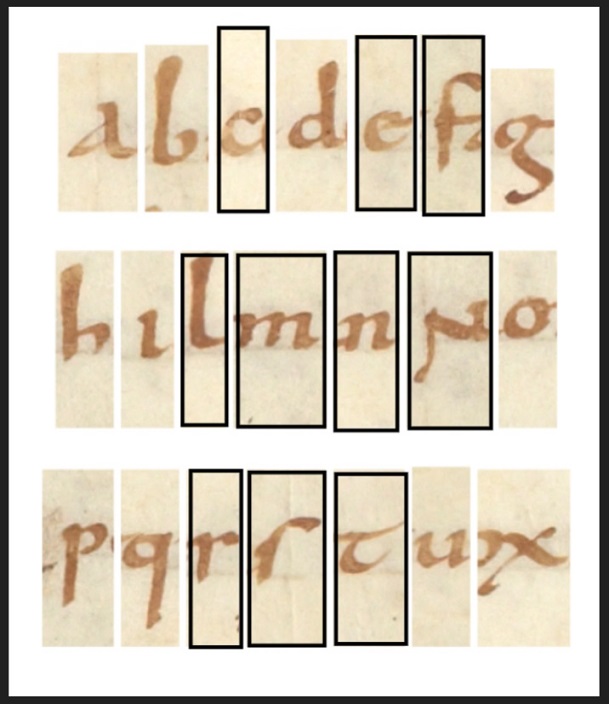 a b c d e f g
h i l m n N o
p q r ſ t u x